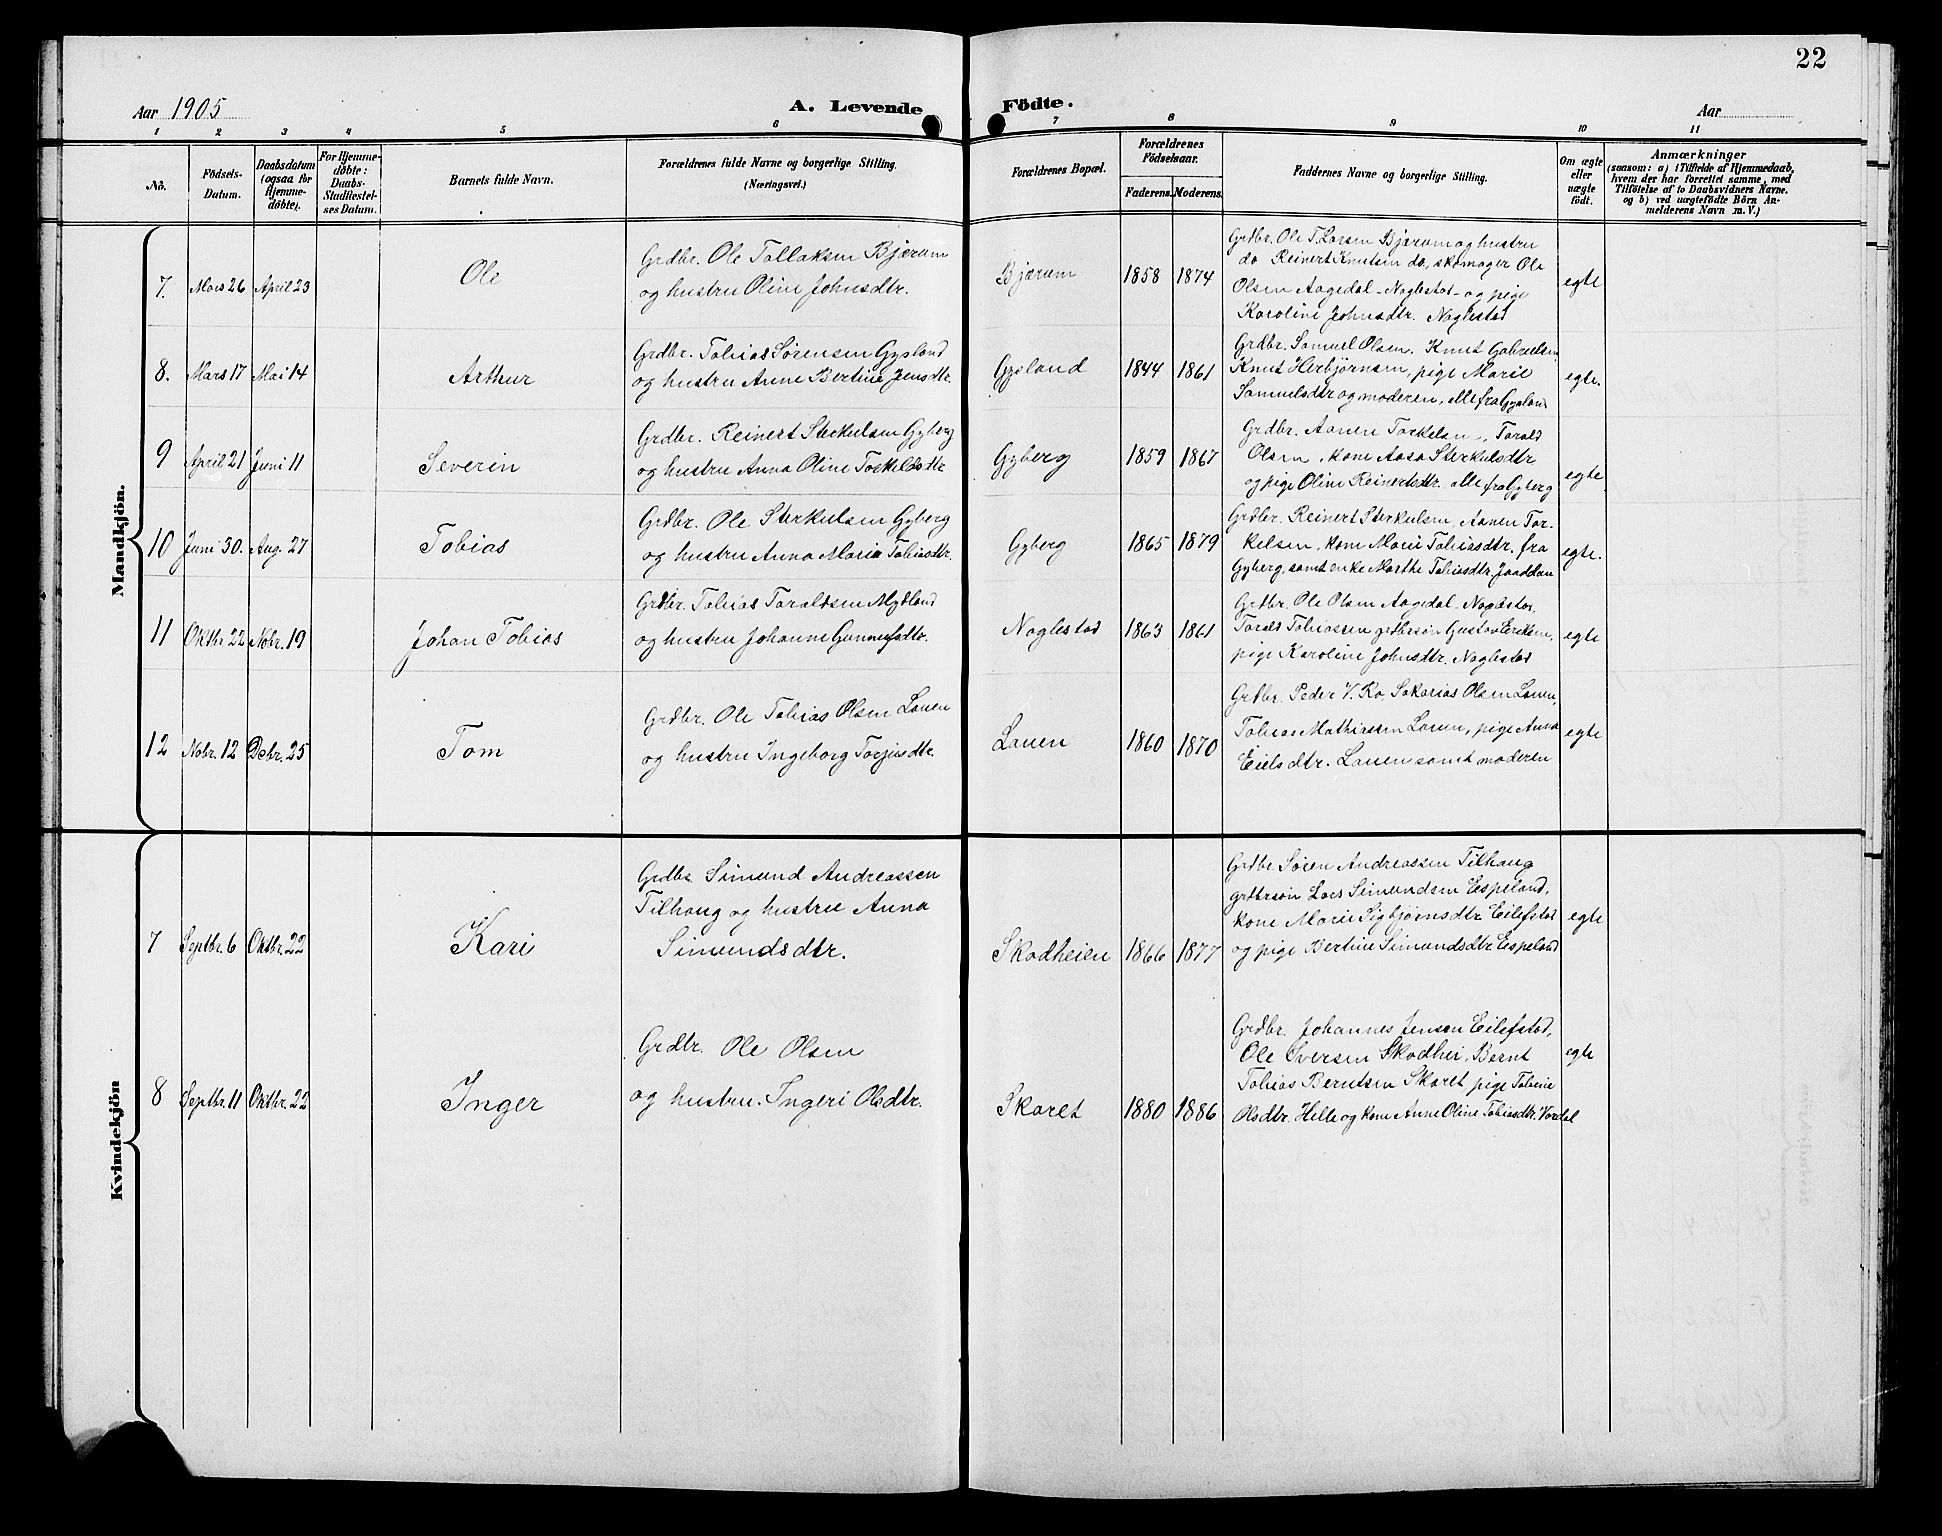 22
Aar 1905
A. Levende Födte.
Aar
1 2 3 4 5 6 7 8 9 10 11
No.
Födsels-
Datum.
Daabsdatum
(ogsaa for
Hjemme-
døbte).
For Hjemme-
døbte:
Daabs-
Stadfæstel-
ses Datum.
Barnets fulde Navn.
Forældrenes fulde Navne og borgerlige Stilling.
(Næringsvei.)
Forældrenes Bopæl.
Forældrenes
Födselsaar.
Faderens. Moderens.
Faddernes Navne og borgerlige Stilling.
Om ægte
eller
uægte
födt.
Anmærkninger
(saasom: a) i Tilfælde af Hjemmedaab,
hvem der har forrettet samme, med
Tilföielse af to Daabsvidners Navne.
og b) ved uægtefödte Börn An-
melderens Navn m. V.)
Mandkjön.
7. Mars 26 April 23
Ole
Grdbr. Ole Tollaksen Bjærum
og hustru Oline Johnsdtr.
Bjærum 1858 1874
Grdbr. Ole T. Larsen Bjærum og hustru
do Reinert Knutsen do, skomager Ole
Olsen Aagedal - Naglestad - og pige
Karoline Johnsdtr. Naglestad
egte
8. Mars 17 Mai 14
Arthur
Grdbr. Tobias Sørensen Gysland
og hustru Anne Bertine Jensdtr.
Gysland 1844 1861
Grdbr. Samuel Olsen, Knut Gabrielsen
Knut Herbjørnsen, pige Marie
Samuelsdtr og moderen, alle fra Gysland
egte.
9 April 21 Juni 11
Severin
Grdbr. Reinert Sterkulsen Gyberg
og hustru Anna Oline Torkeldsdtr
Gyberg 1859 1867
Grdbr. Aanen Torkelsen, Torald
Olsen, kone Aasa Sterkulsdtr
og pige Oline Reinertsdtr. alle fra Gyberg
egte
10 Juni 30. Aug. 27
Tobias
Grdbr. Ole Sterkulsen Gyberg
og hustru Anna Maria Tobiasdtr.
Gyberg 1865 1879
Grdbr. Reinert Sterkulsen, Aanen Tor-
kelsen, kone Marie Tobiasdtr, fra
Gyberg, samt enke Marthe Tobiasdtr. Jaaddan
egte.
11 Oktbr 22 Nobr. 19
Johan Tobias
Grdbr. Tobias Toraldsen Mydland
og hustru Johanne Gunnufsdtr.
Naglestad 1863 1861
Grdbr. Ole Olsen Aagedal - Naglestad.
Torald Tobiassen grdbrsøn Gustav Eriksen,
pige Karoline Johnsdtr. Naglestad
egte
12 Nobr. 12 Debr. 25
Tom
Grdbr. Ole Tobias Olsen Lauen
og hustru Ingeborg Torjusdtr.
Lauen 1860 1870
Grdbr. Peder V. Ro, Sakarias Olsen Lauen,
Tobias Mathiassen Lauen, pige Anna
Eielsdtr. Lauen samt moderen
egte
Kvindekjön
7 Septbr. 6 Oktbr. 22
Kari
Grdbr. Simund Andreassen
Tilhaug og hustru Anna
Simundsdtr.
Skodheien 1866 1877
Grdbr Søren Andreassen Tilhaug
grdbrsøn Lars Simundsen Espeland,
kone Marie Sigbjørnsdtr Eilefstad
og pige Bertine Simundsdtr Espeland
egte
8 Septbr. 11 Oktbr. 22
Inger
Grdbr. Ole Olsen
og hustru. Ingeri Olsdtr.
Skaret 1880 1886
Grdbr. Johannes Jensen Eilefstad,
Ole Iversen Skodhei, Bernt
Tobias Berntsen Skaret, pige Tobine
Olsdtr. Helle og kone Anne Oline Tobiasdtr. Vardal
egte